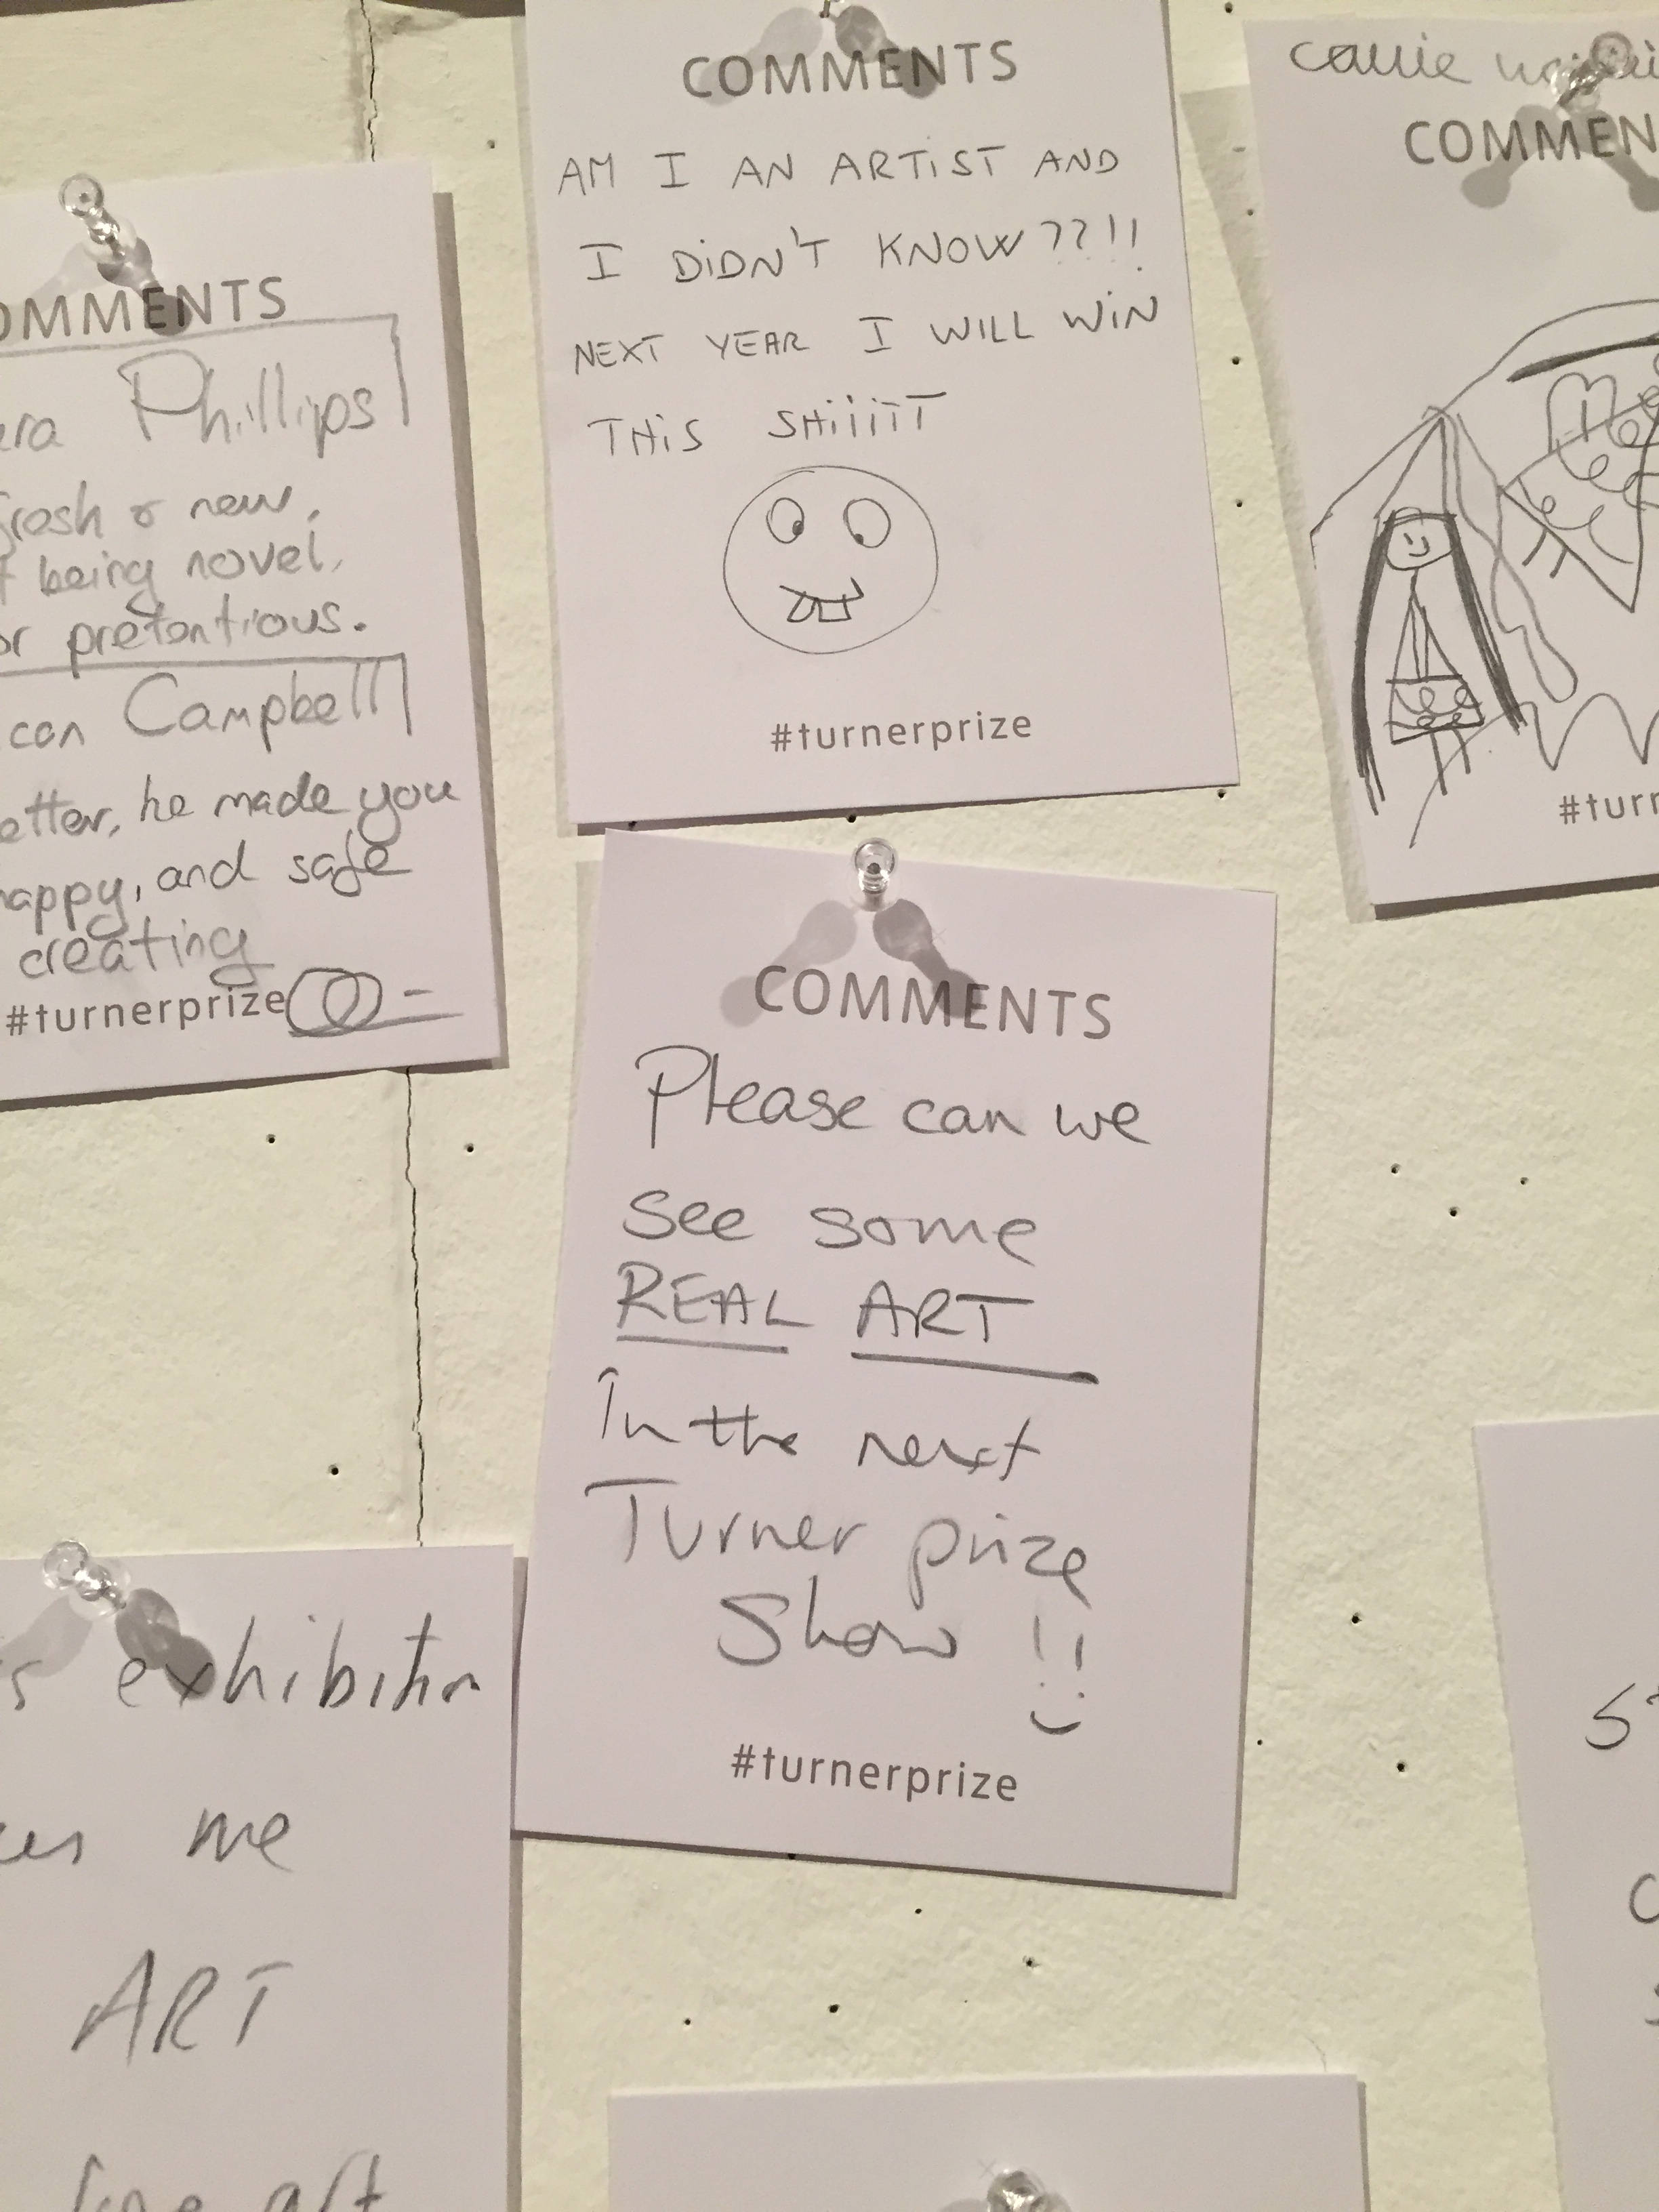 COMMENTS
AM I AN ARTiST AND
I DiDN'T KNOW??!!
NEXT YEAR I WILL WiN
THiS SHiiiiT
#turnerprize
callie
COMMEN
#turn
OMMENTS
era Phillips
fresh & new,
being novel,
or pretentious.
can Campbell
etter, he made you
happy, and safe
creating
#turnerprize
COMMENTS
Please can we
see some
REAL ART
In the next
Turner prize
Show !!
#turnerprize
s exhibition
me
ART
art